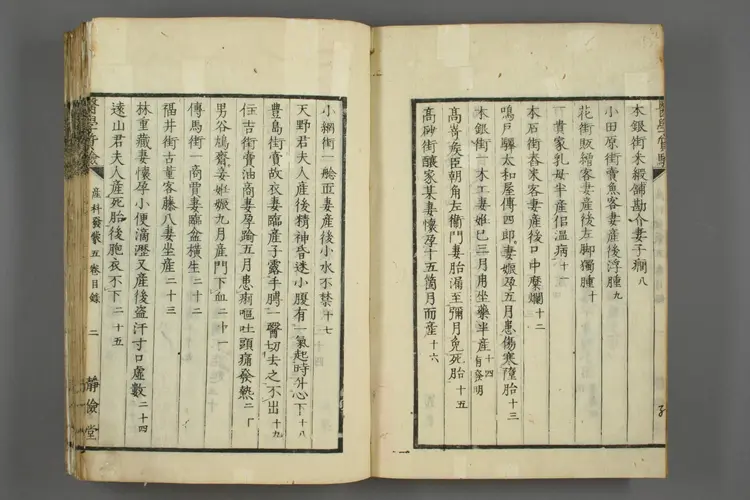 本銀街木綿舖勘介妻子癇 八
小田原街賣魚客妻產後浮腫 九
花街販繒客妻產後左脚獨腫 十
一貴家乳母半產侶溫病 十一
本石街舂米客妻產後口中糜爛 十二
鳴戶驛太和屋傳四郎妻娠孕五月患傷寒墮胎 十三
本銀街一木工妻妊已三月用坐藥半產 十四 有發明
高嵜疾臣朝角左衞門妻胎漏至彌月免死胎 十五
高砂街釀家某妻懷孕十五箇月而產 十六
小網街一舩匠妻產後小水不禁 十七
天野君夫人產後精神昏迷小腹有一氣起時升心下 十八
豊島街賣故衣妻臨產子露手膊一醫切去之不出 十九
住吉街賣油商妻孕踰五月患痢嘔吐頭痛發熱 二十
男谷鳩齋妾妊娠九月產門下血 二十一
傳馬街一商賈妻臨盆橫生 二十二
福井街古董客藤八妻坐產 二十三
林重藏妻懷孕小便滴瀝又產後盜汗寸口虛數 二十四
遠山君夫人產死胎後胞衣不下 二十五
產科發蒙五卷目錄 二 靜儉堂